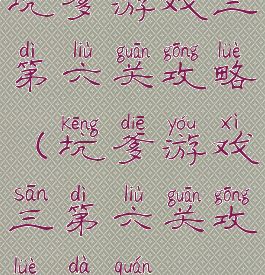 坑爹游戏三
dì liù guān gōng lüè
第六关攻略
kēng diē yóu xì
（坑爹游戏
sān dì liù guān gōng
三第六关攻
lüè dà quán